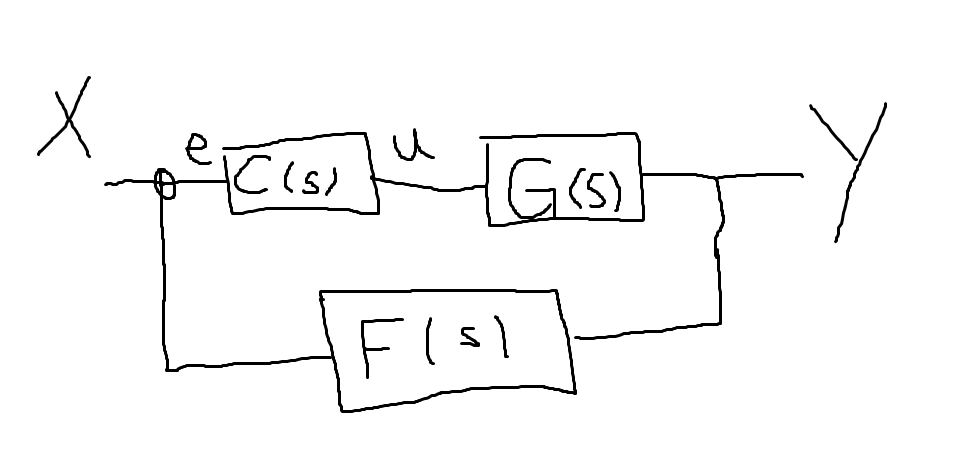 X
e
C(s)
u
G(s)
Y
F(s)